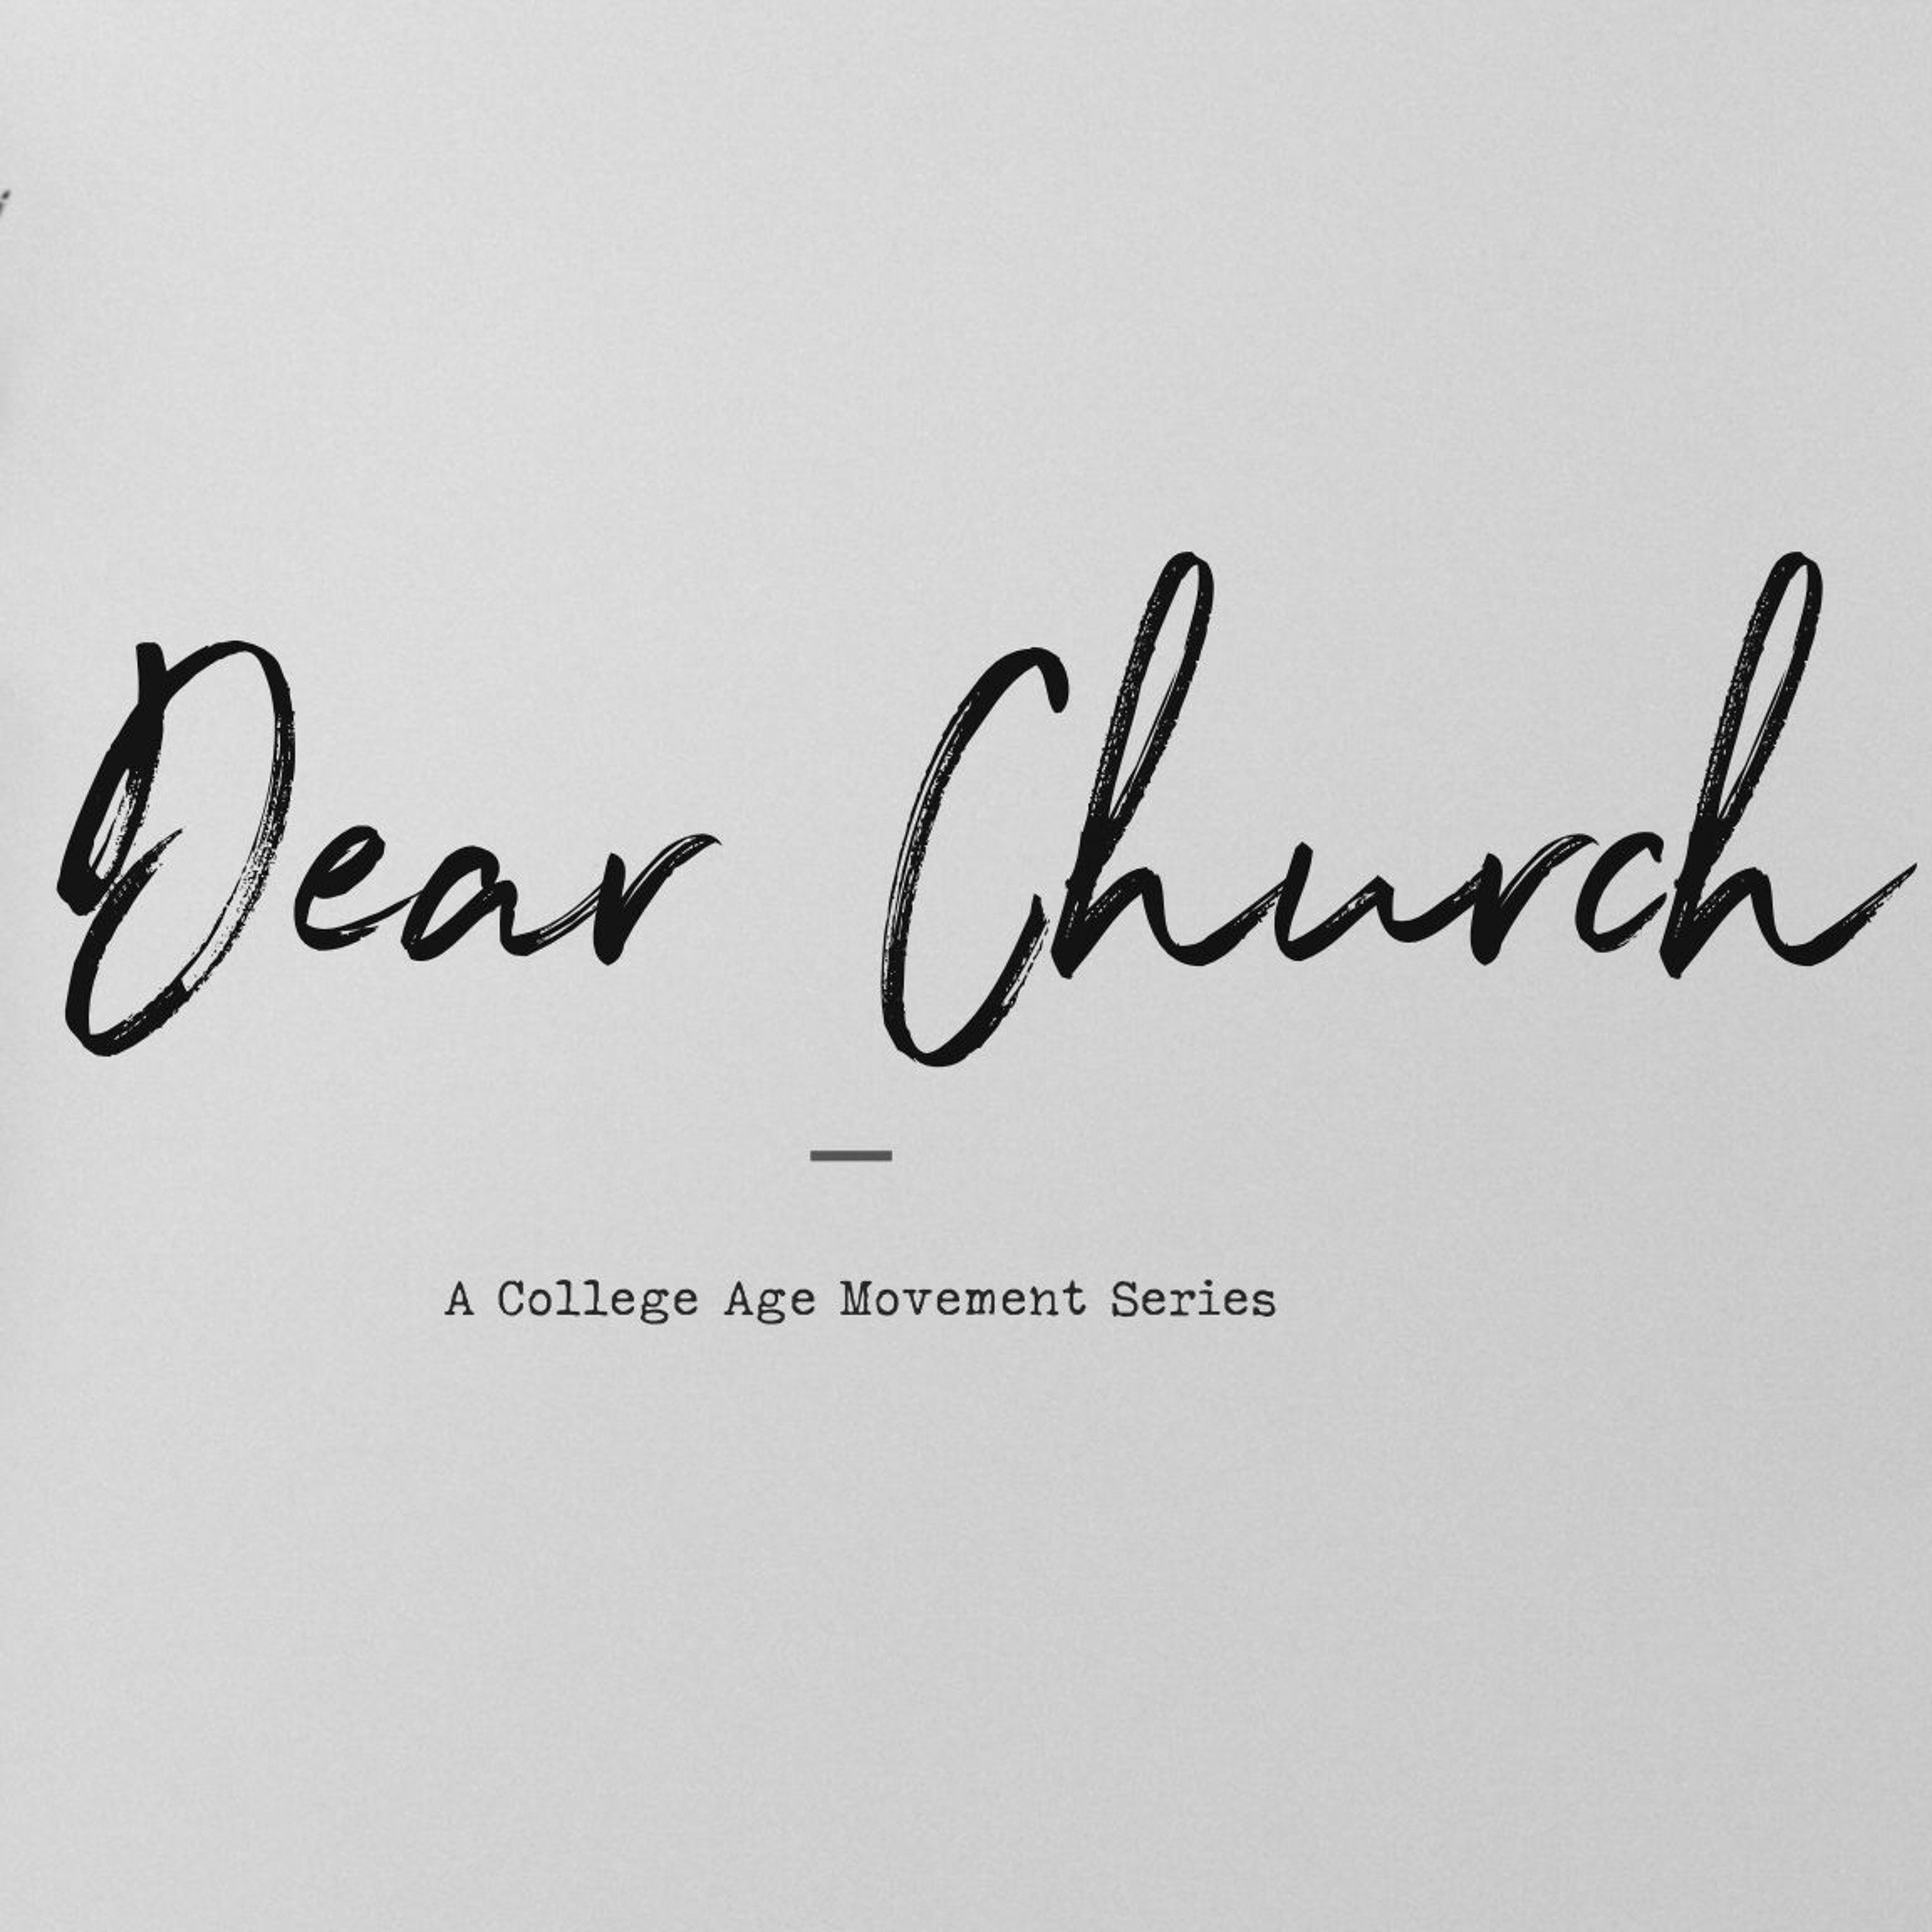 Dear Church
A College Age Movement Series